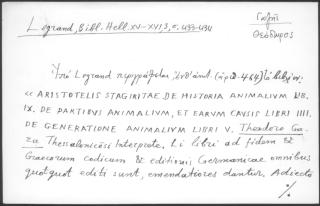 Γαζῆς
Θεόδωρος
Legrand, Bibl. Hell. XV-XVI, 3, σ. 433-434
Ὑπὸ Legrand περιγράφεται
« ARISTOTELIS STAGIRITAE DE HISTORIA ANIMALIUM LIB.
IX. DE PARTIBUS ANIMALIUM, ET EARUM CAUSIS LIBRI IIII.
DE GENERATIONE ANIMALIUM LIBRI V. Theodoro Ga-
za Thessalonicēsi Interprete. Li libri ad fidem &
Graecorum codicum & editionis Germanicae omnibus
quotquot editi sunt, emendatiores dantur. Adiecto
%